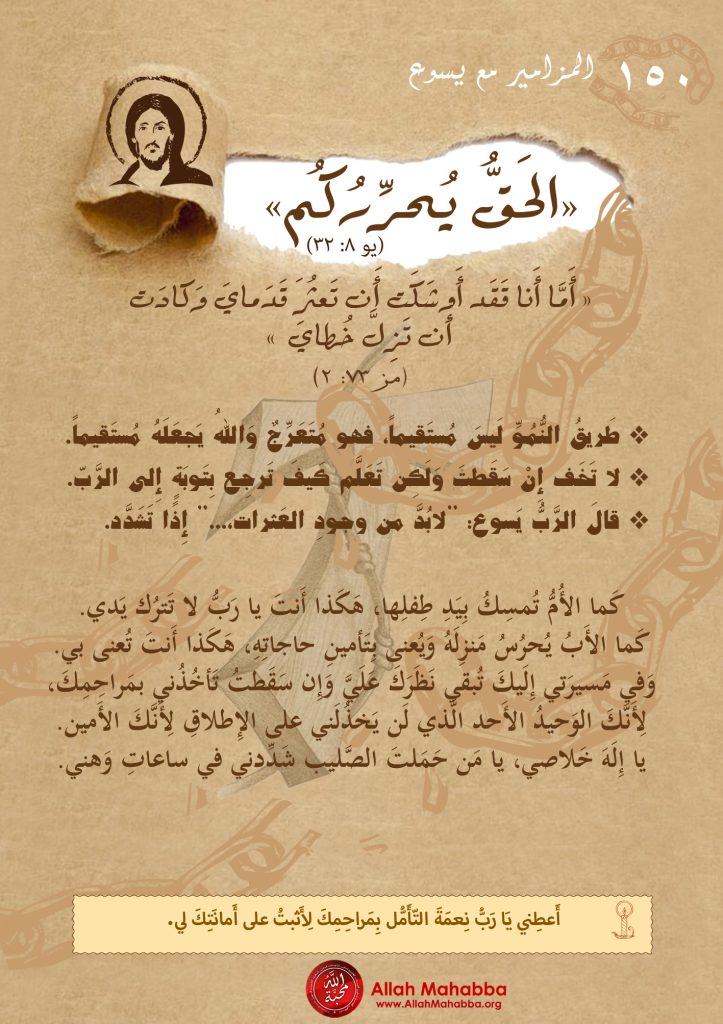 ١٥٠ المزامير مع يسوع
«الحَقُّ يُحرِّرُكُم»
(يو ٨: ٣٢)
« أَمَّا أَنا فَقَد أَوشَكَت أَن تَعثُرَ قَدَمايَ وَكادَت
أَن تَزِلَّ خُطايَ »
(مز ٧٣: ٢)
❖ طَريقُ النُّمُوِّ لَيسَ مُستَقيماً، فهو مُتَعَرِّجٌ وَاللهُ يَجعَلَهُ مُستَقيماً.
❖ لا تَخَف إِنْ سَقَطتَ وَلَكِن تَعَلَّم كيف تَرجِع بِتَوبَةٍ إِلى الرَّبّ.
❖ قالَ الرَّبُّ يَسوع: "لابُدَّ من وجودِ العَثرات...." إِذًا تَشَدَّد.
كَما الأُمُّ تُمسِكُ بِيَدِ طِفلِها، هَكَذا أَنتَ يا رَبُّ لا تَترُك يَدي.
كَما الأَبُ يُحرُسُ مَنزِلَهُ وَيُعنى بِتَأمينِ حاجاتِهِ، هَكَذا أَنتَ تُعنى بي.
وَفي مَسيرَتي إِلَيكَ تُبقي نَظَرَكَ عَلَيَّ وَإِن سَقَطتُ تَأخُذُني بمَراحِمِكَ،
لِأَنَّكَ الوَحيدُ الأَحد الَّذي لَن يَخذُلَني على الإِطلاقِ لِأَنَّكَ الأَمين.
يا إِلَهَ خَلاصي، يا مَن حَمَلتَ الصَّليب شَدِّدني في ساعاتِ وَهني.
أَعطِني يَا رَبُّ نِعمَةَ التّأَمُّل بِمَراحِمِكَ لِأَثبتُ على أَمانَتِكَ لي.
الله محبّة
Allah Mahabba
www.AllahMahabba.org